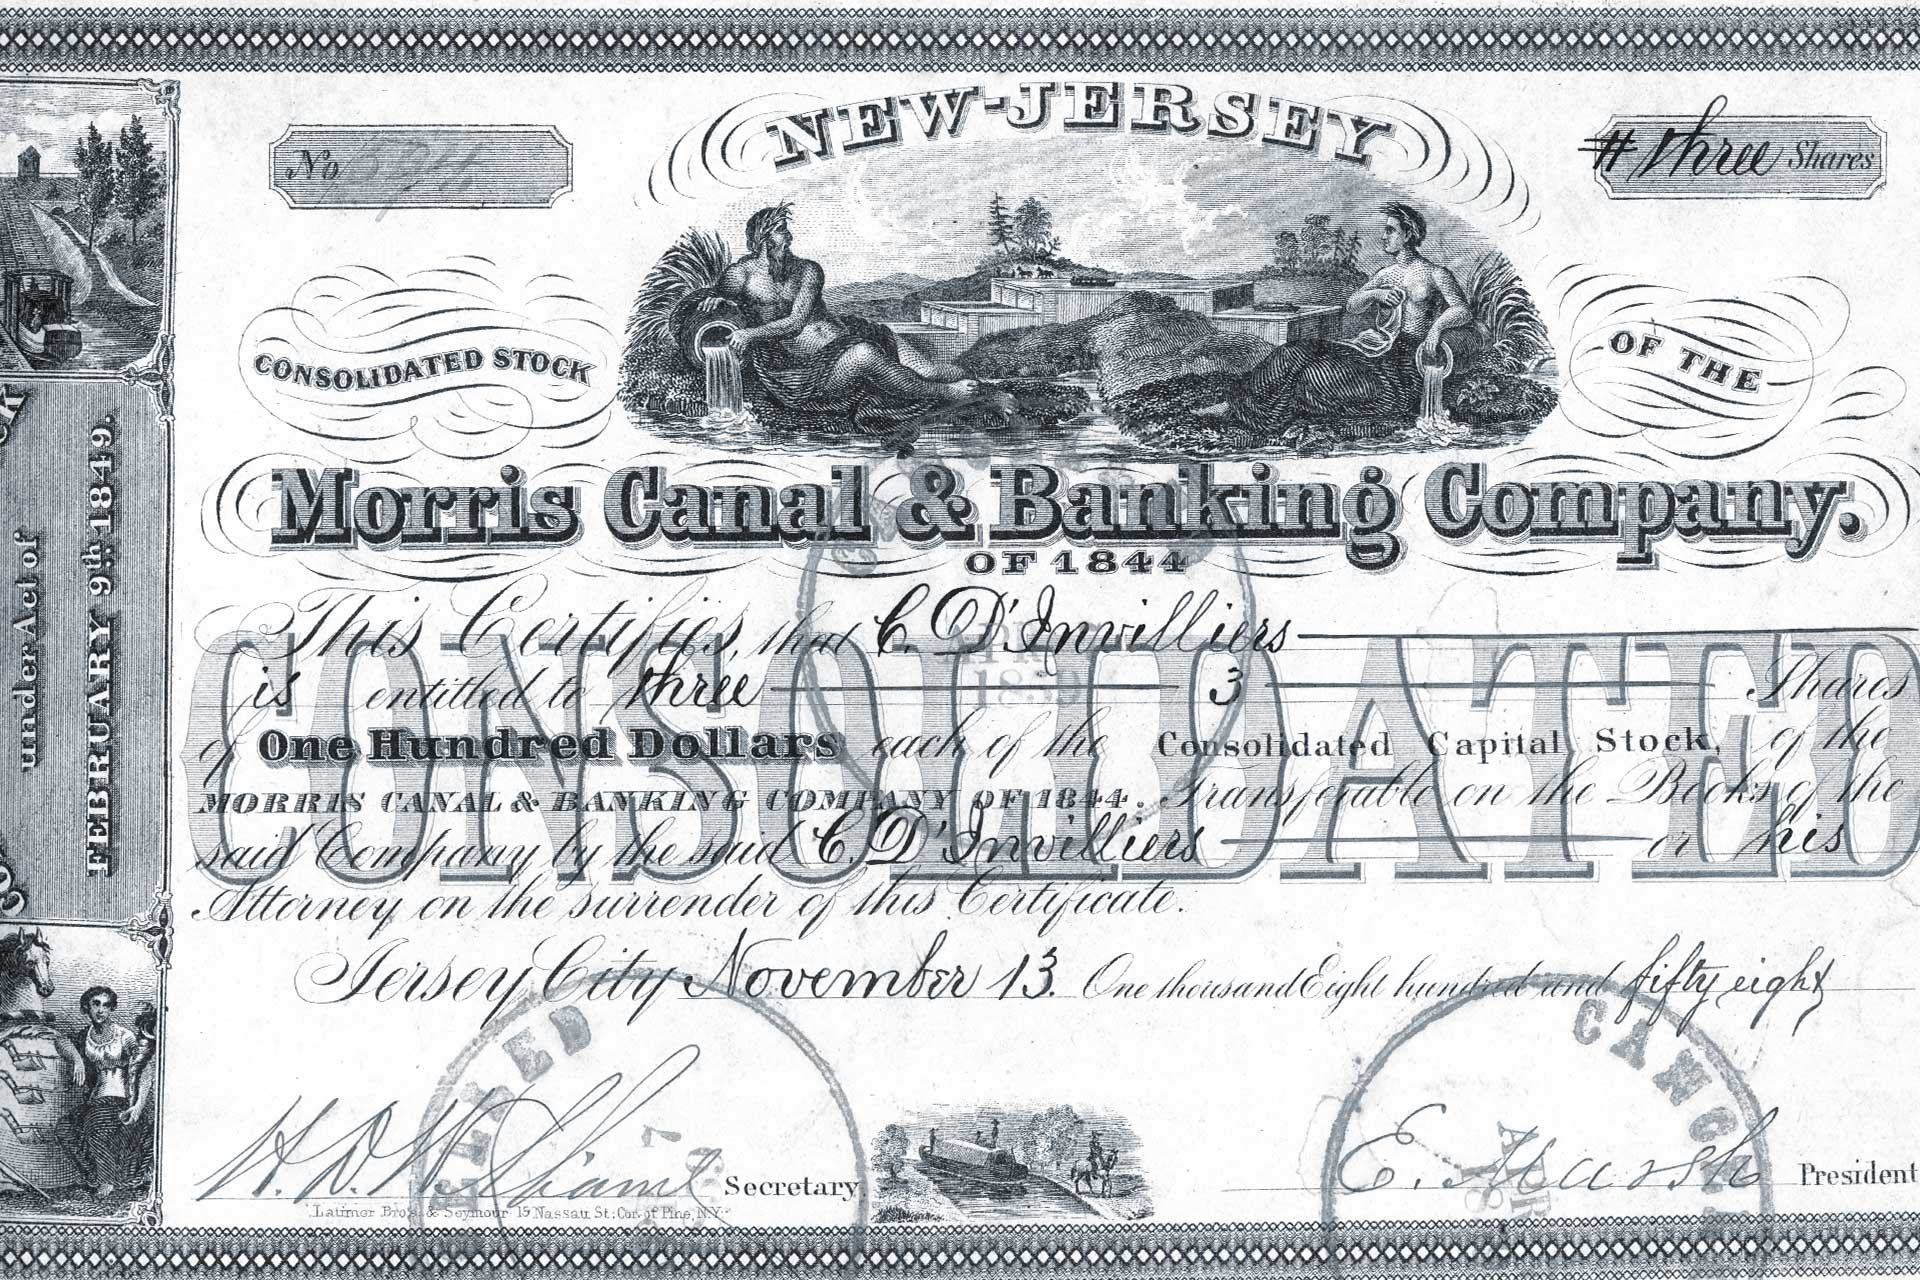 NEW-JERSEY
No
# three Shares
CONSOLIDATED STOCK
OF THE
Morris Canal & Banking Company.
OF 1844
under Act of
FEBRUARY 9th 1849.
CONSOLIDATED
This Certifies, that C. D'Invilliers
is entitled to three 3 Shares
of One Hundred Dollars each of the Consolidated Capital Stock, of the
MORRIS CANAL & BANKING COMPANY OF 1844. Transferable on the Books of the
said Company by the said C. D'Invilliers or his
Attorney on the surrender of this Certificate.
Jersey City November 13. One thousand Eight hundred and fifty eight
E. Marsh President
Secretary
Latimer Bro's. & Seymour 15 Nassau St: Cor. of Pine, N.Y.